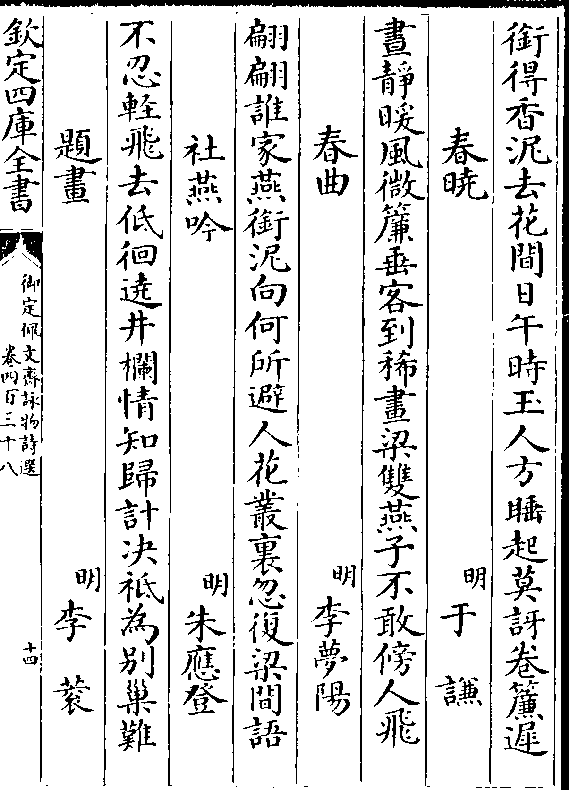 銜得香泥去花間日午時玉人方睡起莫訝卷簾遲
春曉 明 于謙
晝靜暖風微簾垂客到稀畫梁雙燕子不敢傍人飛
春曲 明 李夢陽
翩翩誰家燕銜泥向何所避人花叢裏忽復梁間語
社燕吟 明 朱應登
不忍輕飛去低徊遶井欄情知歸計決祗為別巢難
題畫 明 李蓘
欽定四庫全書
御定佩文齋詠物詩選
卷四百三十八
十四